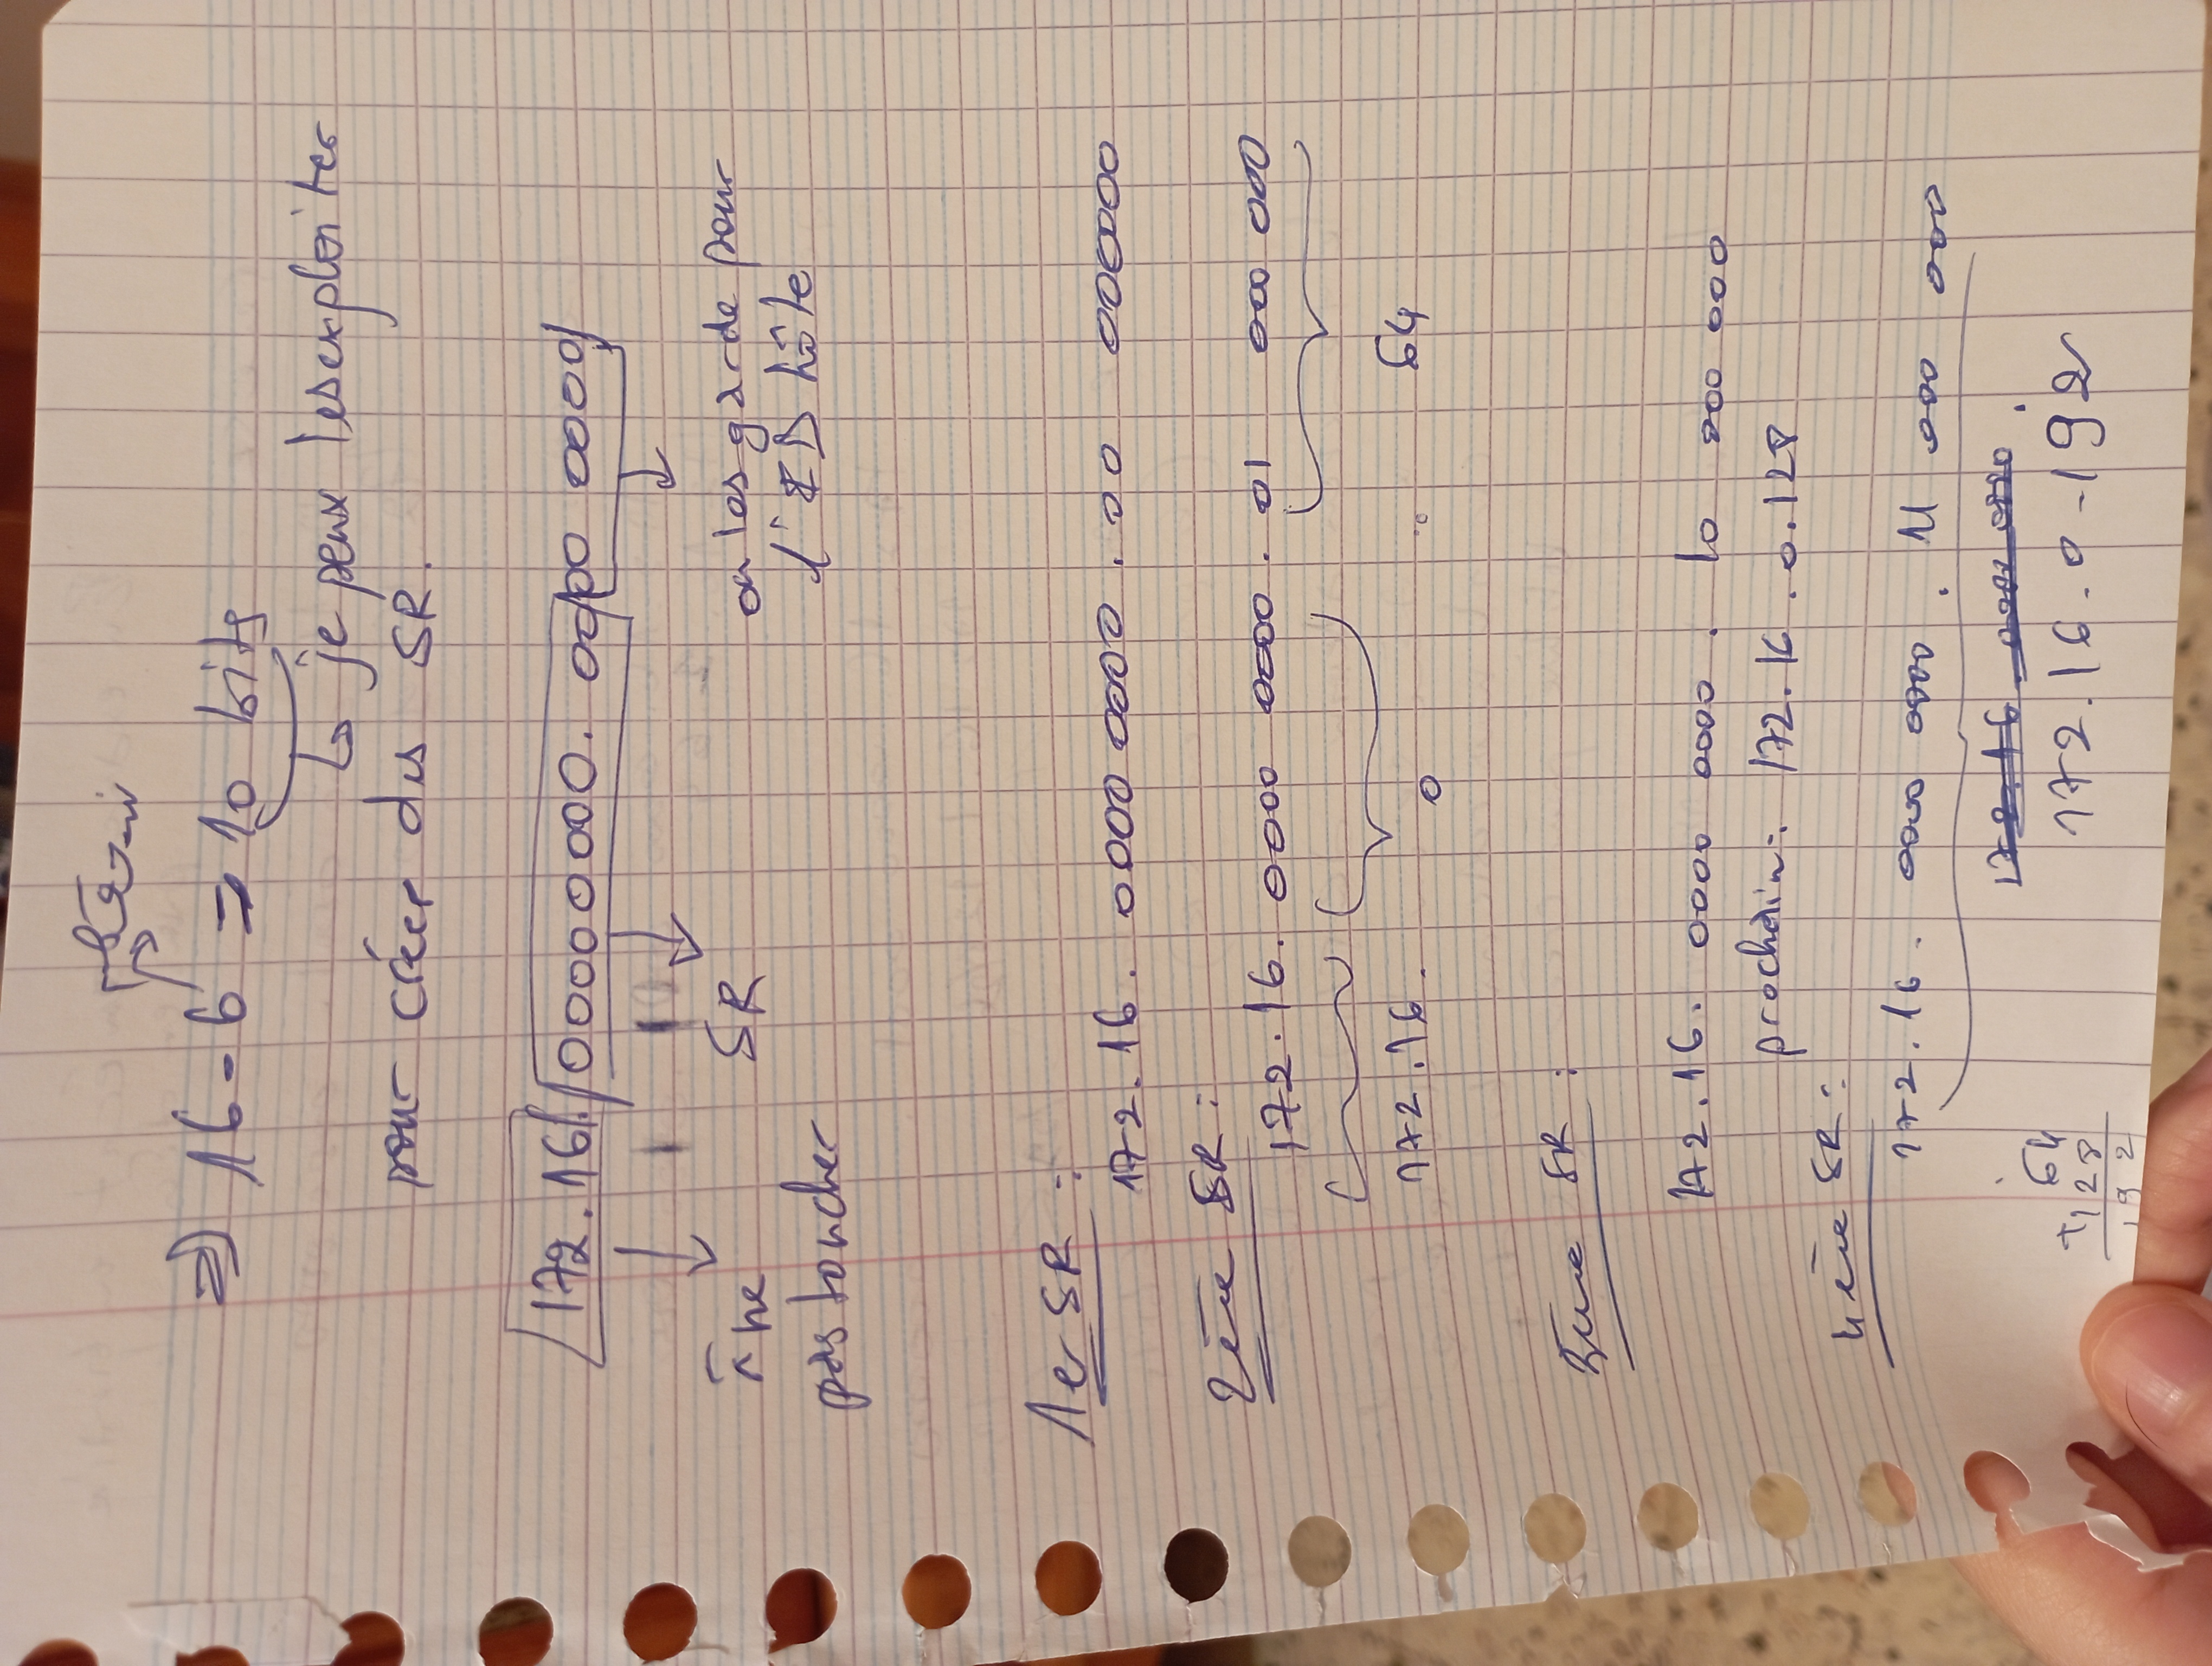 besoin
=> 16 - 6 = 10 bits
↳ je peux les exploiter
pour créer des SR.
172.16. 00000000. 0000 0000
à ne SR on les garde pour
pas toucher l'ID hôte
1er SR :
172.16. 0000 0000 . 00 000000
2ème SR :
172.16. 0000 0000 . 01 000 000
172.16. 0 . 64
3ème SR :
172.16. 0000 0000 . 10 000 000
prochain : 172.16.0.128
4ème SR :
172.16. 0000 0000 . 11 000 000
172.16.0.192
64
+128
192